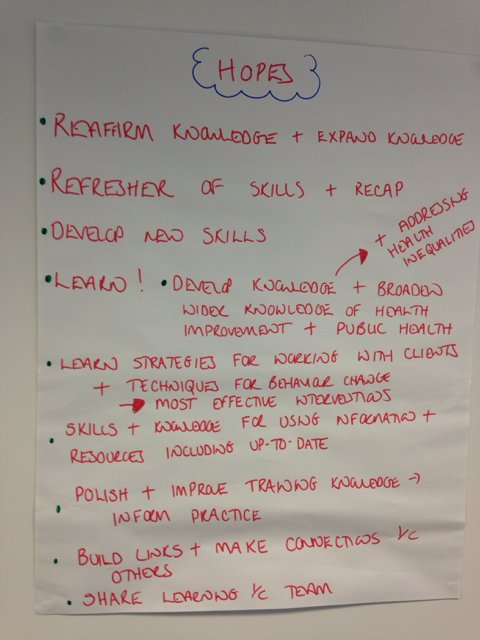 HOPES
• REAFIRM KNOWLEDGE + EXPAND KNOWLEDGE
• REFRESHER OF SKILLS + RECAP
• DEVELOP NEW SKILLS
+ ADDRESSING
HEALTH
INEQUALITIES
• LEARN! • DEVELOP KNOWLEDGE + BROADEN
WIDER KNOWLEDGE OF HEALTH
IMPROVEMENT + PUBLIC HEALTH
• LEARN STRATEGIES FOR WORKING WITH CLIENTS
+ TECHNIQUES FOR BEHAVIOR CHANGE
→ MOST EFFECTIVE INTERVENTIONS
• SKILLS + KNOWLEDGE FOR USING INFORMATION +
RESOURCES INCLUDING UP-TO-DATE
• POLISH + IMPROVE TRAINING KNOWLEDGE →
INFORM PRACTICE
• BUILD LINKS + MAKE CONNECTIONS
OTHERS
• SHARE LEARNING TEAM